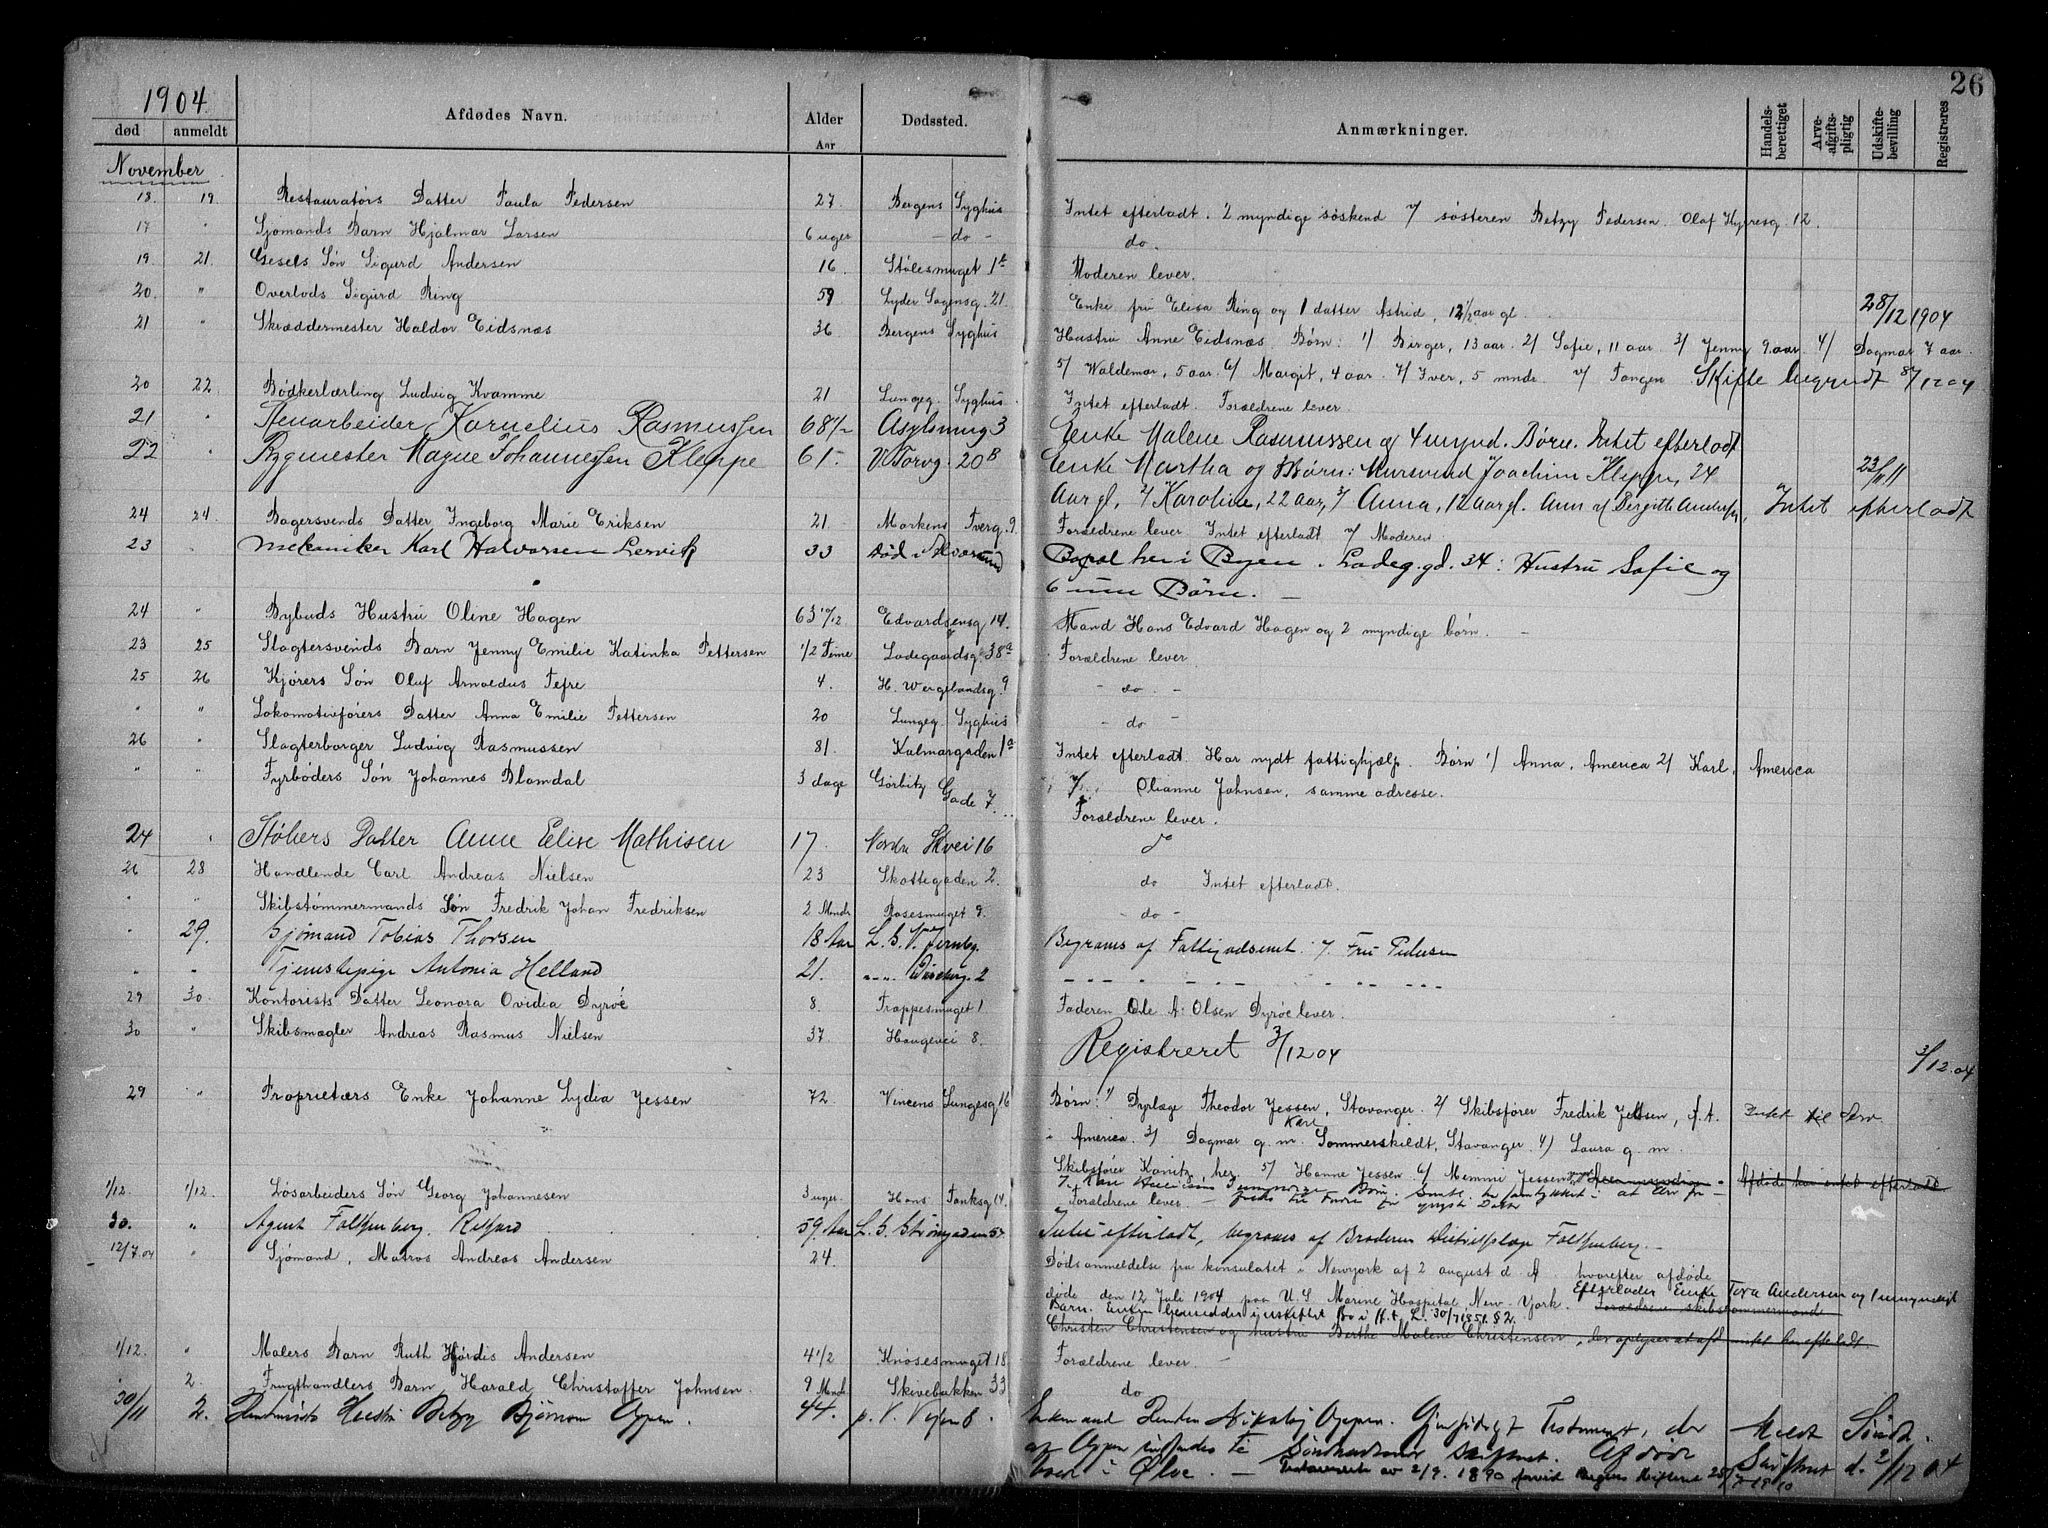 26
1904
død anmeldt Afdødes Navn. Alder Aar Dødssted. Anmærkninger. Handels-berettiget Arve-afgifts-pligtig Udskifte-bevilling Registreres
November
18. 19. Restauratørs Datter Paula Pedersen 27 Bergens Syghus Intet efterladt. 2 myndige søskend v/ søsteren Betzy Pedersen. Olaf Kyrresg. 12.
17 " Sjømands Barn Hjalmar Larsen 6 uger – do – do.
19 21. Gesels Søn Sigurd Andersen 16. Stølesmuget 1 Moderen lever.
20. " Overlods Sigurd Ring 59 Lyder Sagensg. 21. Enke fru Elisa Ring og 1 datter Astrid, 12 1/2 aar gl. 28/12 1904
21 " Skræddermester Haldor Eidsnæs 36 Bergens Syghus Hustru Anne Eidsnæs. Børn: 1/ Birger, 13 aar. 2/ Sofie, 11 aar. 3/ Jenny 9. aar. 4/ Dagmar 7 aar.
5/ Waldemar, 5 aar. 6/ Margit, 4 aar. 7/ Iver, 5 mndr. v/ Tangen Skifte begyndt 8/12 04
20 22. Bødkerlærling Ludvig Kvamme 21 Lungeg. Syghus. Intet efterladt. Forældrene lever.
21 " Kornelius Rasmussen 68 Asylsmug 3 Enke Malene Rasmussen og 4 mynd. Børn. Intet efterladt
22 " Bygmester Magne Johannessen Kleppe 61 V. Torvg. 20B Enke Martha og Børn: Mursvend Joachim Kleppe, 24 23/11
Aar gl, 2/ Karoline, 22 aar, 3/ Anna, 12 aar gl. Anm. af Birgitte Intet efterladt
24 24. Bagersvends Datter Ingeborg Marie Eriksen 21 Markens Tverg. 9. Forældrene lever Intet efterladt v/ Moderen.
23 " Mekaniker Karl Halvorsen Lervik 33 Død i her i Byen. Ladeg.gd. 34: Hustru Sofie og
6 um. Børn. –
24 " Bybuds Hustru Oline Hagen 63 10/12 Edvardsensg 14. Mand Hans Edvard Hagen og 2 myndige børn. –
23 25 Slagtersvends Barn Jenny Emilie Katinka Pettersen 1/2 Time Ladegaardsg 38a Forældrene lever.
25 26 Kjørers Søn Oluf Arnoldus Tefre 4. H. Wergelandsg. 9 – do. –
" " Lokomotivførers Datter Anna Emilie Pettersen 20 Lungeg. Syghus – do –
26 " Slagterborger Ludvig Rasmussen 81. Kalmargaden 1a Intet efterladt. Har nydt fattighjælp. Børn 1/ Anna, America 2/ Karl, America
" " Fyrbøders Søn Johannes Blomdal 3 dage Gørbitz Gade 7. v/ Olianne Johnsen, samme adresse.
Forældrene lever.
24 " Støbers Datter Anne Elise Mathisen 17. Nordre Skvei 16 do
26 28 Handlende Carl Andreas Nielsen 23 Skottegaden 2. do Intet efterladt.
" " Skibstømmermands Søn Fredrik Johan Fredriksen 2 Mndr Rosesmuget 9. – do –
" 29. Sjømand Tobias Thorsen 18 Aar L. S. V. Jernbg. Begraves af Fattigvæsenet. v/ Fru Pedersen
" " Tjenestepige Antonia Helland 21. 2
29 30. Kontorists Datter Leonora Ovidia Dyrøe 8. Trappesmuget 1 Faderen Ole A. Olsen Dyrøe lever.
30 " Skibsmægler Andreas Rasmus Nielsen 37 Haugevei 8. Registreret 3/12 04 3/12. 04
29 " Proprietærs Enke Johanne Lydia Jessen 72 Vincens Lungesg 16 Børn: 1/ Dyrlæge Theodor Jessen, Stavanger. 2/ Skibsfører Fredrik Jessen, f.t. Intet til
i America. 3/ Dagmar g. m. Karl Sommerskildt, Stavanger 4/ Laura g. m.
Skibsfører Kanitz, her. 5/ Hanne Jessen 6/ Memmi Jessen Afdøde har intet efterladt
1/12. 1/12. Løsarbeiders Søn Georg Johannesen 3 uger. Hans Tanksg 14. Forældrene lever –
30. " Agent Falkenberg 59 Aar L. S. Strømgaden 54 Intet efterladt, begraves af Broderen Distriktslæge Falkenberg. –
12/7.04 " Sjømand, Matros Andreas Andersen 24. Dødsanmeldelse fra konsulatet i Newyork af 2 august d. A. hvorefter afdøde
døde den 12 Juli 1904 paa U.S. Marine Hospital, New-York. Efterlader Enke Tora Andersen og 1 umyndigt
Barn. Enken hensidder i uskiftet Bo i H. t. L. 30/7 1851 § 2. Forældrene skibstømmermand
Christen Christensen og hustru Berthe Malene Christensen, der oplyser at afd intet har efterladt
1/12. " Malers Barn Ruth Hjørdis Andersen 4 1/2 Knøsesmuget 18 Forældrene lever. –
" 2. Frugthandlers Barn Harald Christoffer Johnsen. 9 Mndr Skivebakken 33 do
30/11 2. Hustru Betzy Bjørnson Oppen. 44. Enkemand Nikolaj Oppen. Gjensidigt Testament, der Meldt
af Oppen indsendes til Søndhordlands Skifteret. Afdøde Skifteret d. 2/12 04
boede i Ølve. – Testamente av 2/9. 1890